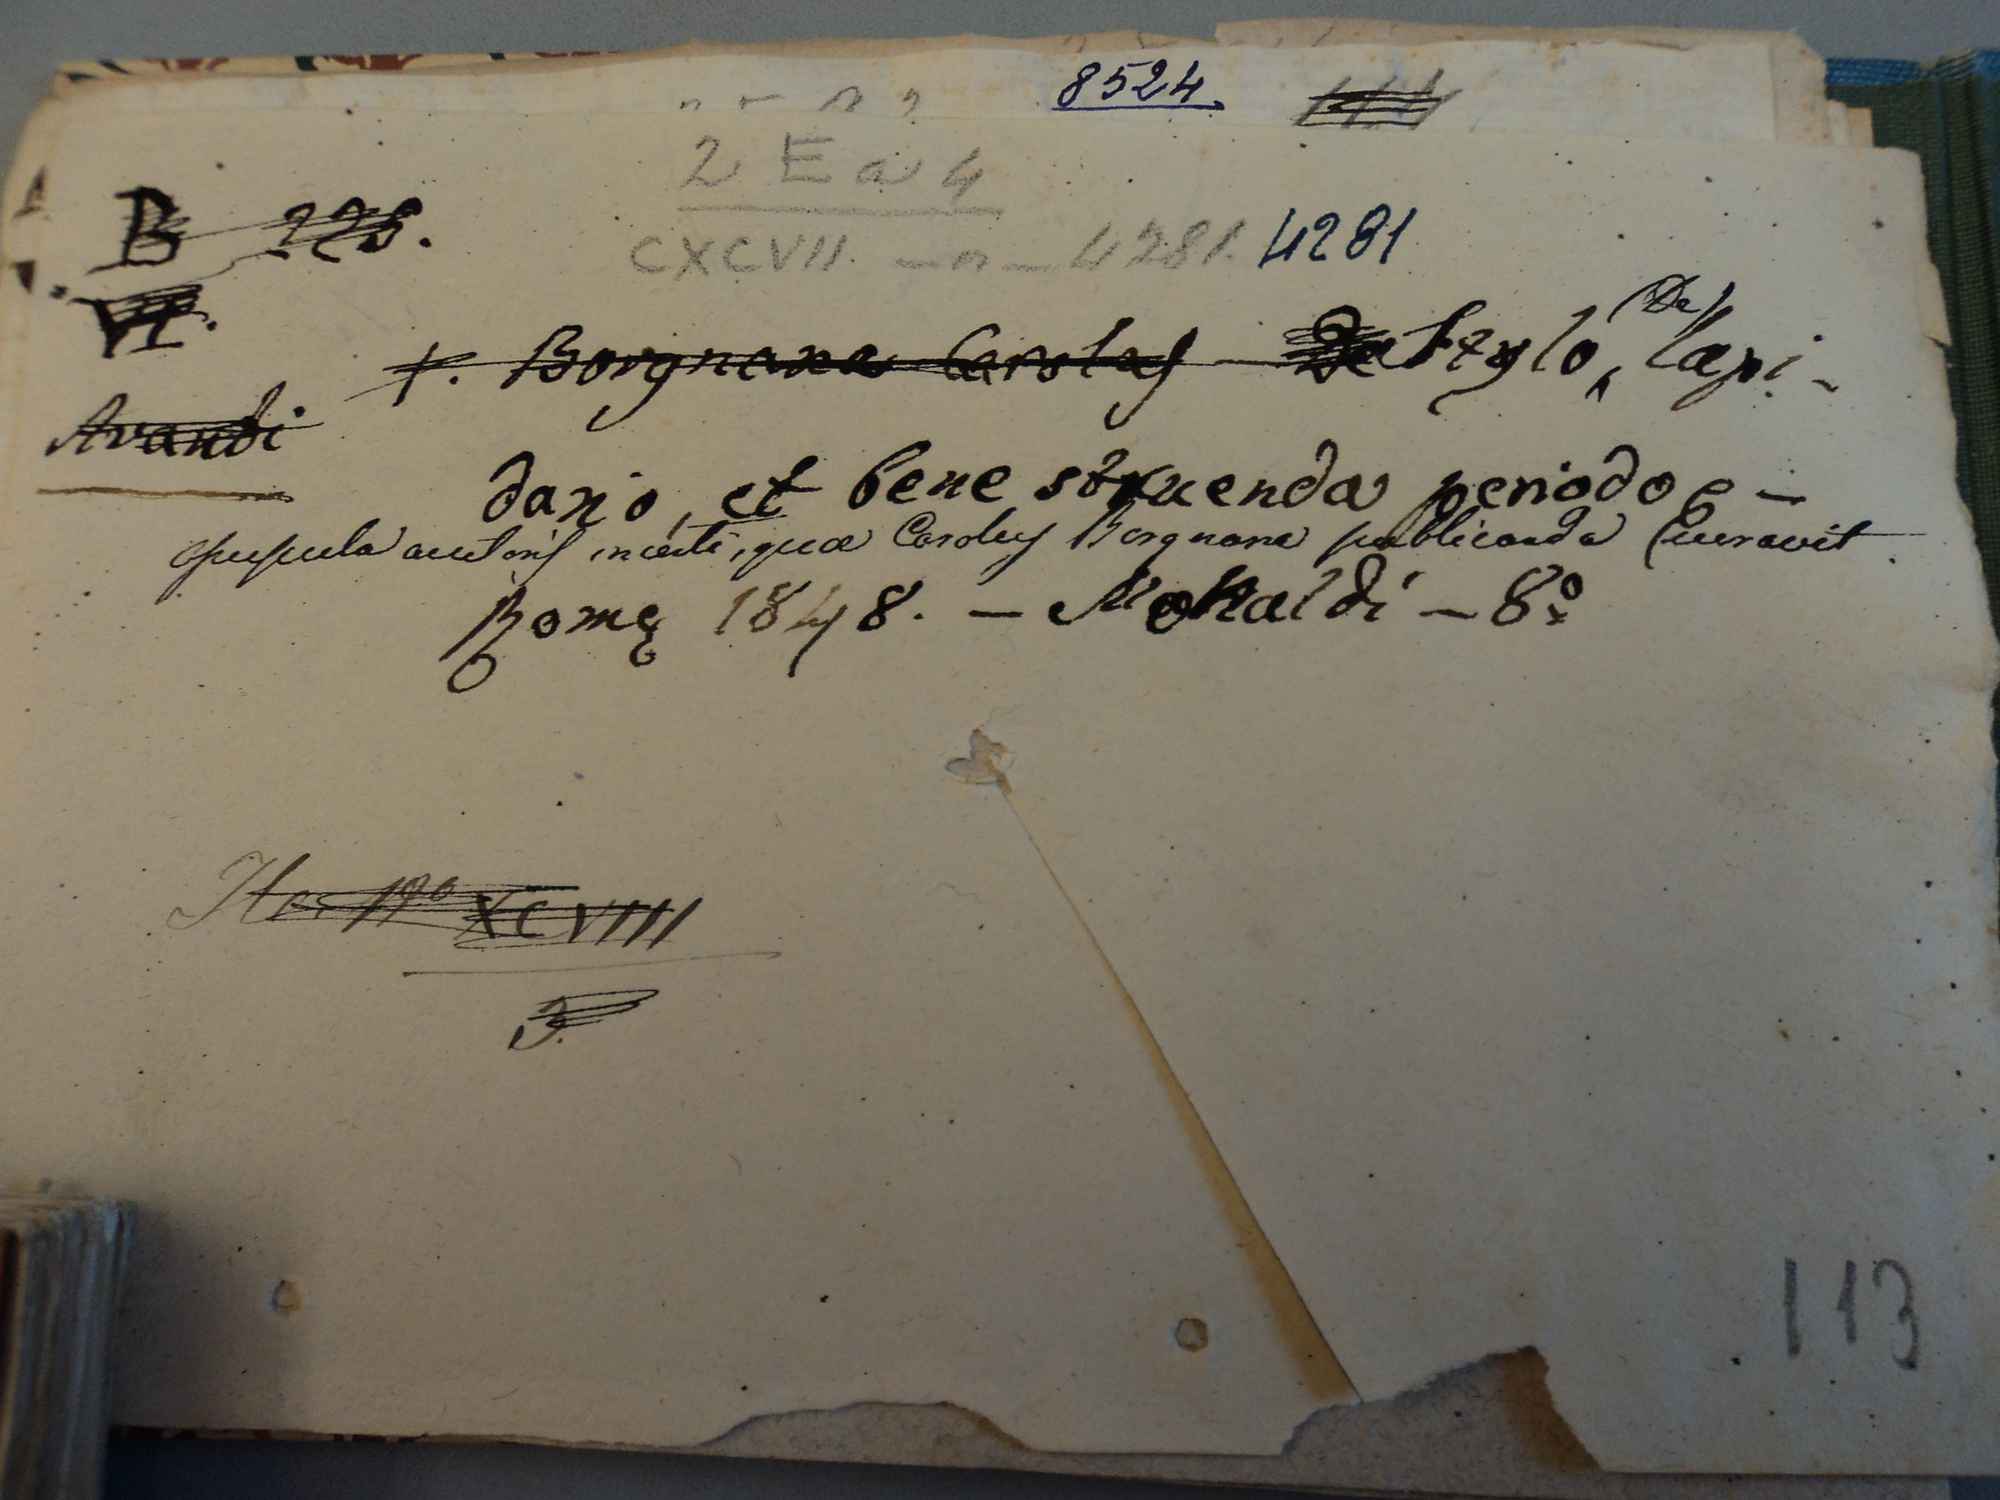 8524
2 E a 4
B 225.
CXCVII. - n - 4281. 4281
VI.
(De)
+. Borgnana Carolus - De Stylo, lapi-
Avandi
dario, et bene struenda periodo -
opuscula auctoris incerti, quæ Carolus Borgnana publicanda curavit
Romę 1848. - Monaldi - 8º
XCVIII
3.
113